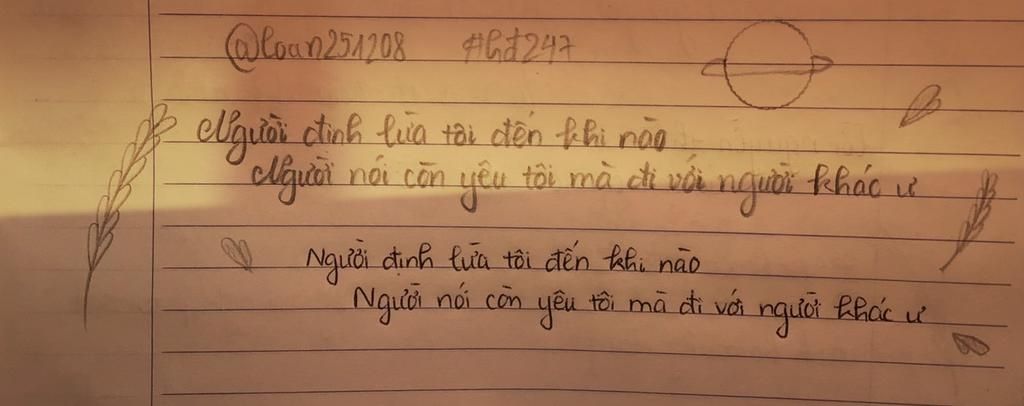 @loan251208 #hd247
Người định lừa tôi đến khi nào
Người nói còn yêu tôi mà đi với người khác ư
Người định lừa tôi đến khi nào
Người nói còn yêu tôi mà đi với người khác ư